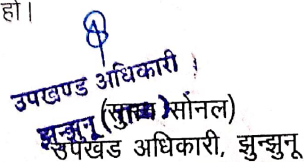 हो।
उपखण्ड अधिकारी
झुन्झुनू (राज.)
( सोनल)
उपखंड अधिकारी, झुन्झुनू